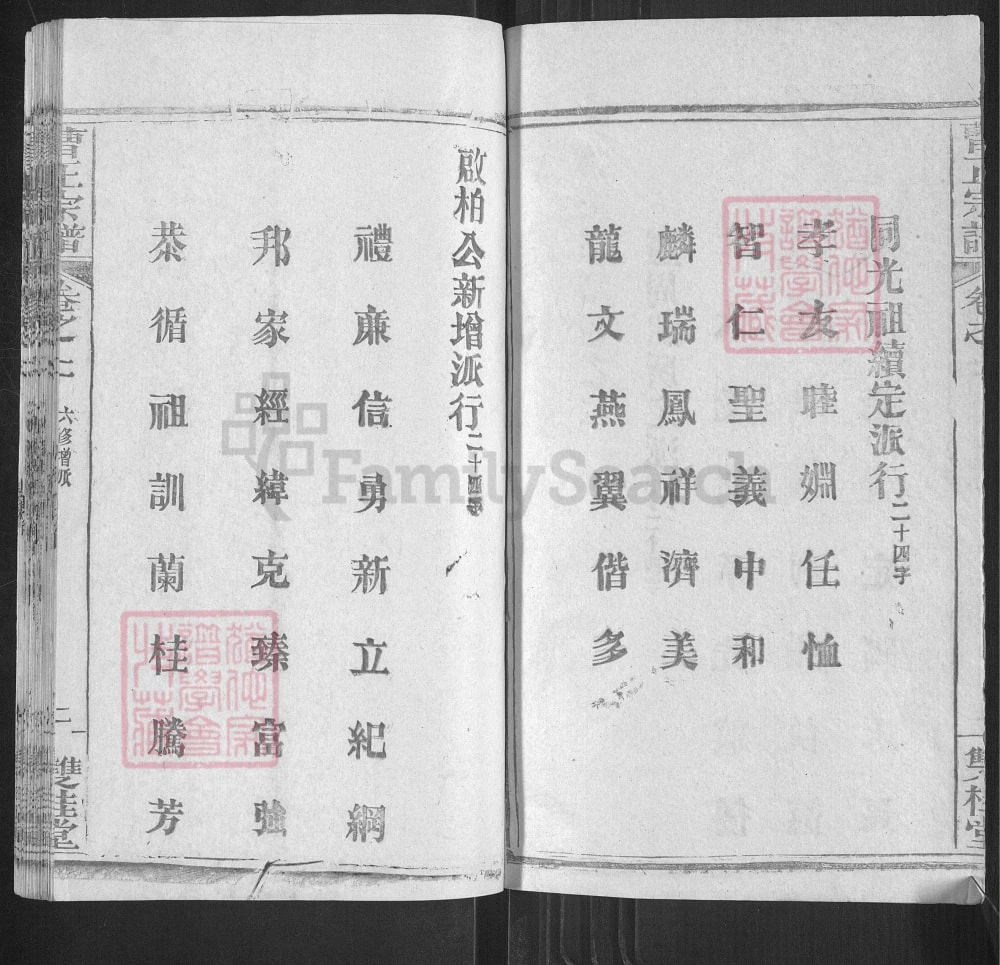 同光祖續定派行二十四字
孝友睦婣任恤
智仁聖義中和
麟瑞鳳祥濟美
龍文燕翼偕多
啟柏公新增派行二十四字
禮廉信勇新立紀綱
邦家經緯克臻富強
恭循祖訓蘭桂騰芳
曹氏宗譜
六修增派
二
雙桂堂
FamilySearch